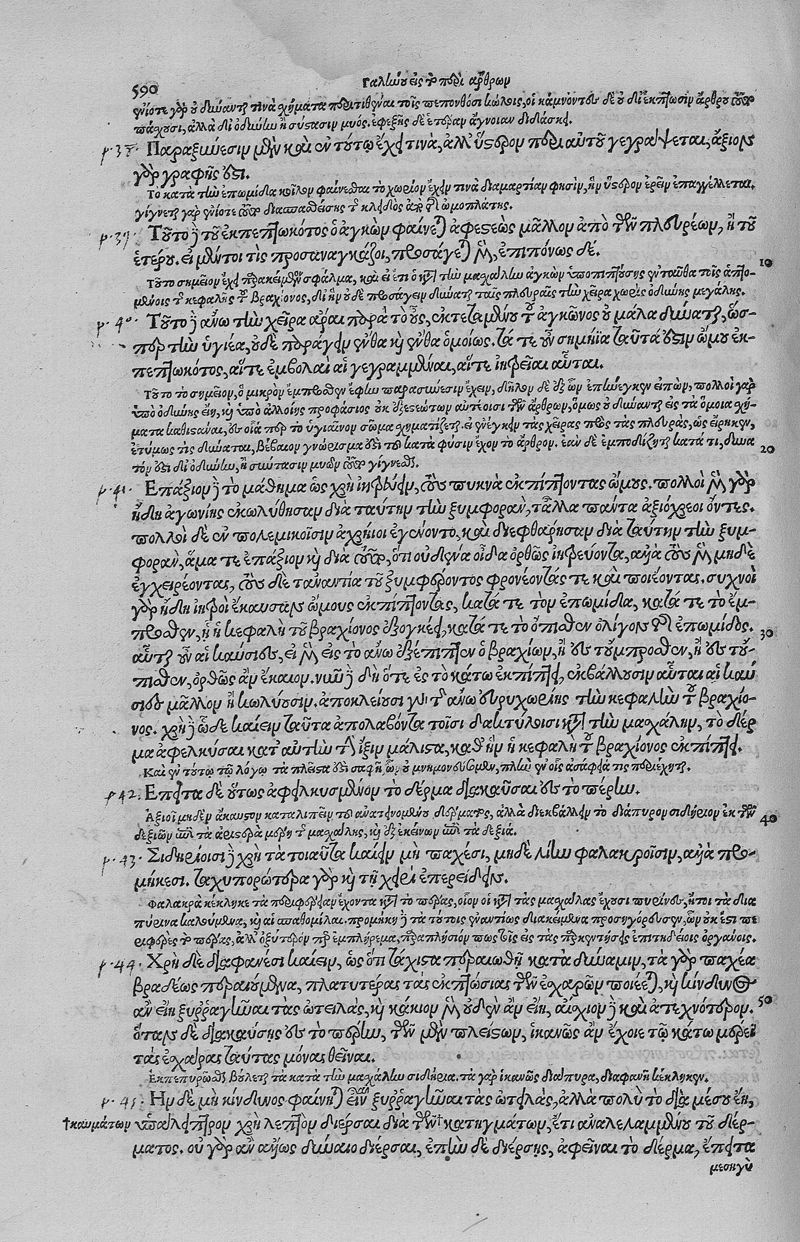 590
Γαληνοῦ εἰς τὸ περὶ ἄρθρων
ἐνίοτε γὰρ οὐ δύνανται τινὰ σχήματα περιτιθέναι τοῖς πεπονθόσι κώλοις, οἱ κάμνοντες δὲ οὐ δι' ἐκπτωσιν ἄρθρου τοῦτο
πάσχουσι, ἀλλὰ δι' ὀδύνην ἢ σύστασιν μυός. ἐφεξῆς δὲ ἑτέραν ἄγνοιαν διδάσκει.
Παραξύνεσιν μὴν καὶ ἐν τούτῳ ἔχει τινὰ, ἀλλ' ὕστερον περὶ αὐτοῦ γεγράψεται, ἄξιον
γὰρ γραφῆς ἐστι.
Τὸ κατὰ τὴν ἐπωμίδα κοῖλον φαίνεσθαι τὸ χωρίον ἔχειν τινὰ διαμαρτίαν φησὶν, ἣν ὕστερον ἐρεῖν ἐπαγγέλλεται.
γίγνεται γὰρ ἐνίοτε τοῦτο διασπασθείσης τῆς κλειδὸς ἀπὸ τῆς ὠμοπλάτης.
Τοῦτο δὲ τοῦ ἐκπεπτωκότος ὁ ἀγκὼν φαίνεται ἀφεστεὼς μᾶλλον ἀπὸ τῶν πλευρέων, ἢ τοῦ
ἑτέρου. εἰ μέντοι τις προσαναγκάζοι, προσάγεται μὲν, ἐπιπόνως δέ.
10
Τοῦτο τὸ σημεῖον ἔχει
μένοις τῆς κεφαλῆς τοῦ βραχίονος, δι' ἣν οὐδὲ προσάγειν δύναται ταῖς πλευραῖς τὴν χεῖρα χωρὶς ὀδύνης μεγάλης.
Τοῦτο δὲ ἄνω τὴν χεῖρα ἆραι παρὰ τὸ οὖς, ἐκτεταμένου τοῦ ἀγκῶνος οὐ μάλα δύναται, ὥσ-
περ τὴν ὑγιέα, οὐδὲ παράγειν ἔνθα καὶ ἔνθα ὁμοίως. τά τε οὖν σημήϊα ταῦτά ἐστιν ὤμου ἐκ-
πεπτωκότος, αἵ τε ἐμβολαὶ αἱ γεγραμμέναι, αἵ τε ἰητρεῖαι αὗται.
Τοῦτο τὸ σημεῖον, ὃ μικρὸν ἔμπροσθεν ἔφην παρασύνεσιν ἔχειν, δῆλον δὲ ἐξ ὧν ἐπήνεγκεν εἰπὼν, πολλοὶ γὰρ
ὑπὸ ὀδύνης
ματα καθιστάναι, ἐς οἷα περ τὸ ὑγιαῖνον σῶμα σχηματίζεται. εἰ ἐνέγκειν τὰς χεῖρας πρὸς τὰς πλευρὰς, ὡς εἴρηκεν,
ἑτοίμως τις δύναται, βέβαιον γνώρισμά ἐστι τοῦ κατὰ φύσιν ἔχειν τὸ ἄρθρον. ἐὰν δὲ ἐμποδίζηται κατά τι, δυνα
20
τόν ἐστι δι' ὀδύνην, ἢ σύντασιν μυῶν τοῦτο γίγνεσθαι.
Ἐπάξιον δὲ τὸ μάθημα ὡς χρὴ ἰητρεύειν, τοὺς πυκνὰ ἐκπίπτοντας ὤμους. πολλοὶ μὲν γὰρ
ἤδη ἀγωνίης ἐκωλύθησαν διὰ ταύτην τὴν ξυμφορὰν, τἄλλα πάντα ἀξιόχρεοι ὄντες.
πολλοὶ δὲ ἐν πολεμικοῖσιν ἀχρήιοι ἐγένοντο, καὶ διεφθάρησαν διὰ ταύτην τὴν ξυμ-
φορὰν, ἅμα τε ἐπάξιον καὶ διὰ τοῦτο, ὅτι οὐδένα οἶδα ὀρθῶς ἰητρεύοντα, ἀλλὰ τοὺς μὲν μηδὲ
ἐγχειρέοντας, τοὺς δὲ τἀναντία τοῦ ξυμφέροντος φρονέοντάς τε καὶ ποιέοντας. συχνοὶ
γὰρ ἤδη ἰητροὶ ἔκαυσαν ὤμους ἐκπίπτοντας, κατά τε τὸν ἐπωμίδα, κατά τε τὸ ἔμ-
προσθεν, ᾗ ἡ κεφαλὴ τοῦ βραχίονος ἐξογκεῖ, κατά τε τὸ ὄπισθεν ὀλίγον τῆς ἐπωμίδος.
30
αὗται οὖν αἱ καύσεις, εἰ μὲν εἰς τὸ ἄνω ἐξέπιπτεν ὁ βραχίων, ἢ ἐς τοὔμπροσθεν, ἢ ἐς τοὔ-
πισθεν, ὀρθῶς ἂν ἔκαιον. νῦν δὲ δὴ ὅτε ἐς τὸ κάτω ἐκπίπτει, ἐκβάλλουσιν αὗται αἱ καύ
σιες μᾶλλον ἢ κωλύουσιν. ἀποκλείουσι γὰρ τῆς ἄνω εὐρυχωρίης τὴν κεφαλὴν τοῦ βραχίο-
νος. χρὴ δὲ ὧδε καίειν ταῦτα ἀπολαβόντα τοῖσι δακτύλοισι κατὰ τὴν μασχάλην, τὸ δέρ
μα ἀφελκύσαι κατ' αὐτὴν τὴν ἴξιν μάλιστα, καθ' ἣν ἡ κεφαλὴ τοῦ βραχίονος ἐκπίπτει.
Καὶ ἐν τούτῳ τῷ λόγῳ τὰ πλεῖστά ἐστι σαφῆ
Ἔπειτα δὲ οὕτως ἀφειλκυσμένον τὸ δέρμα διακαῦσαι ἐς τὸ πέρην.
Ἀξιοῖ μηδὲν ἄκαυστον καταλιπεῖν τοῦ ἀνατεινομένου δέρματος, ἀλλὰ διεκβάλλειν τὸ διάπυρον σιδήριον ἐκ τῶν
40
δεξιῶν ἐπὶ τὰ ἀριστερὰ μέρη τῆς μασχάλης, καὶ ἐξ ἐκείνων ἐπὶ τὰ δεξιά.
Σιδηρίοισι δὲ χρὴ τὰ τοιαῦτα καίειν μὴ παχέσι, μηδὲ λίην φαλακροῖσιν, ἀλλὰ προ-
μήκεσι. ταχυπορώτερα γὰρ καὶ τῇ χειρὶ ἐπερείδειν.
Φαλακρὰ κέκληκε τὰ περιφέρειαν ἔχοντα κατὰ τὸ πέρας, οἷον οἱ κατὰ τὰς μασχάλας ἔχουσι πυρῆνες, ἤτοι τὰ δια
πύρινα καλούμενα, καὶ αἱ σπαθομῆλαι. προμήκη δὲ τὰ τούτοις ἐναντίως διακείμενα προσηγόρευσεν, ὧν οὐκ ἔστι πε
ριφερὲς τὸ πέρας, ἀλλ' ὀξύτερον
Χρὴ δὲ διαφανέσι καίειν, ὡς ὅτι τάχιστα περαιωθῇ κατὰ δύναμιν, τὰ γὰρ παχέα
βραδέως περαιούμενα, πλατυτέρας τὰς ἐκπτώσιας τῶν ἐσχαρῶν ποιέεται, καὶ κίνδυνος
ἂν εἴη ξυρραγῆναι τὰς ὠτειλὰς, καὶ κάκιον μὲν οὐδὲν ἂν εἴη, αἴσχιον δὲ καὶ ἀτεχνότερον.
50
ὅταν δὲ διακαύσῃς ἐς τὸ πέρην, τῶν μὲν πλείστων, ἱκανῶς ἂν ἔχοιε τῷ κάτω μέρει
τὰς ἐσχάρας ταύτας μόνας θεῖναι.
Ἐκπεπυρῶσθαι βούλεται τὰ κατὰ τὴν μασχάλην σιδήρια. τὰ γὰρ ἱκανῶς διάπυρα, διαφανῆ κέκληκεν.
Ἢν δὲ μὴ κίνδυνος φαίνηται εἶναι ξυρραγῆναι τὰς ὠτειλὰς, ἀλλὰ πολὺ τὸ διὰ μέσου ἔῃ,
†καυμάτων ὑπάλειπτρον χρὴ λεπτὸν διέρσαι διὰ τῶν †κατηγμάτων, ἔτι ἀναλελαμμένου τοῦ δέρ-
ματος. οὐ γὰρ ἂν ἄλλως δύναιο διέρσαι, ἐπὴν δὲ διέρσῃς, ἀφεῖναι τὸ δέρμα, ἔπειτα
μεσηγὺ